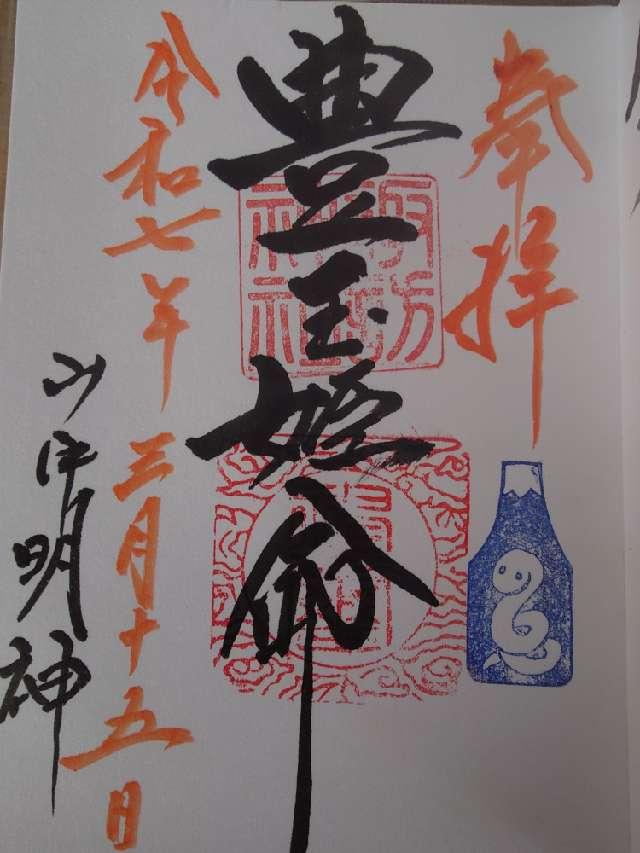 奉拝
豊玉姫命
令和七年三月十五日
山中明神